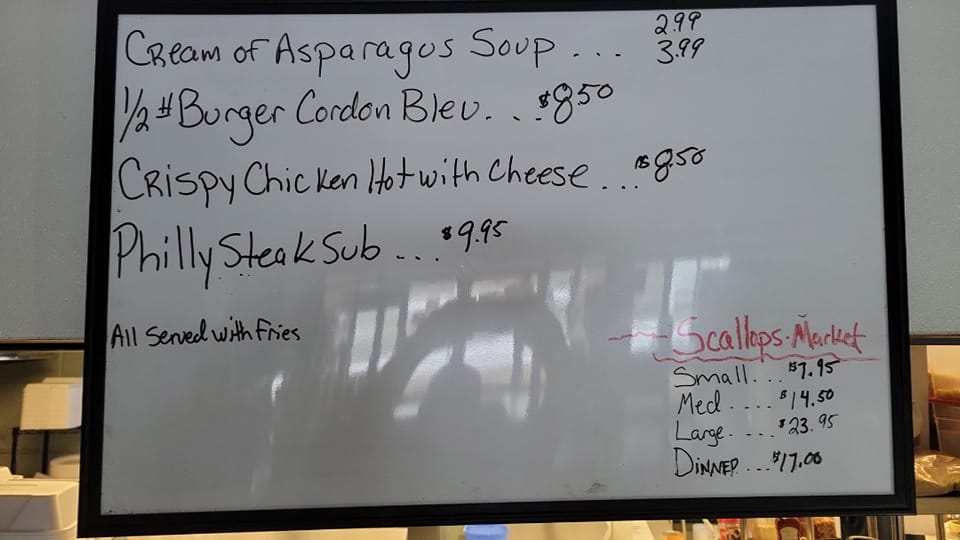 Cream of Asparagus Soup . . . 2.99
3.99
1/2 # Burger Cordon Bleu. . . $8.50
Crispy Chicken Hot with Cheese . . . $8.50
Philly Steak Sub . . . $9.95
All Served with Fries
Scallops-Market
Small. . . $7.95
Med . . . . $14.50
Large. . . . $23.95
Dinner . . . $17.00